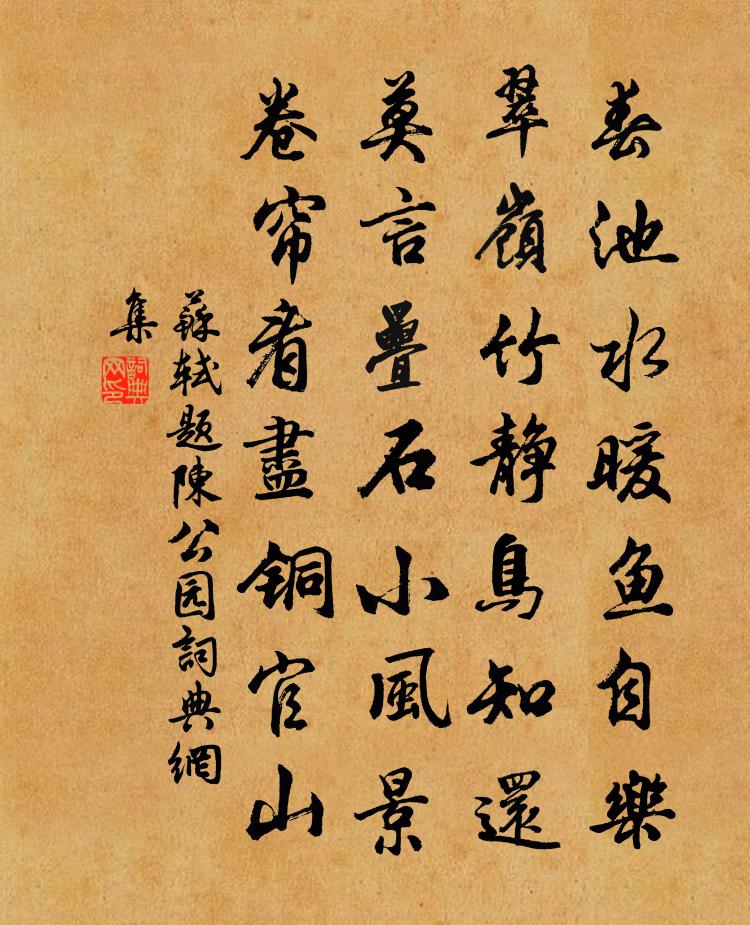 春池水暖鱼自樂
翠嶺竹靜鳥知還
莫言疊石小風景
卷帘看盡銅官山
蘇軾題陳公园詞典網
集
詞典
网印